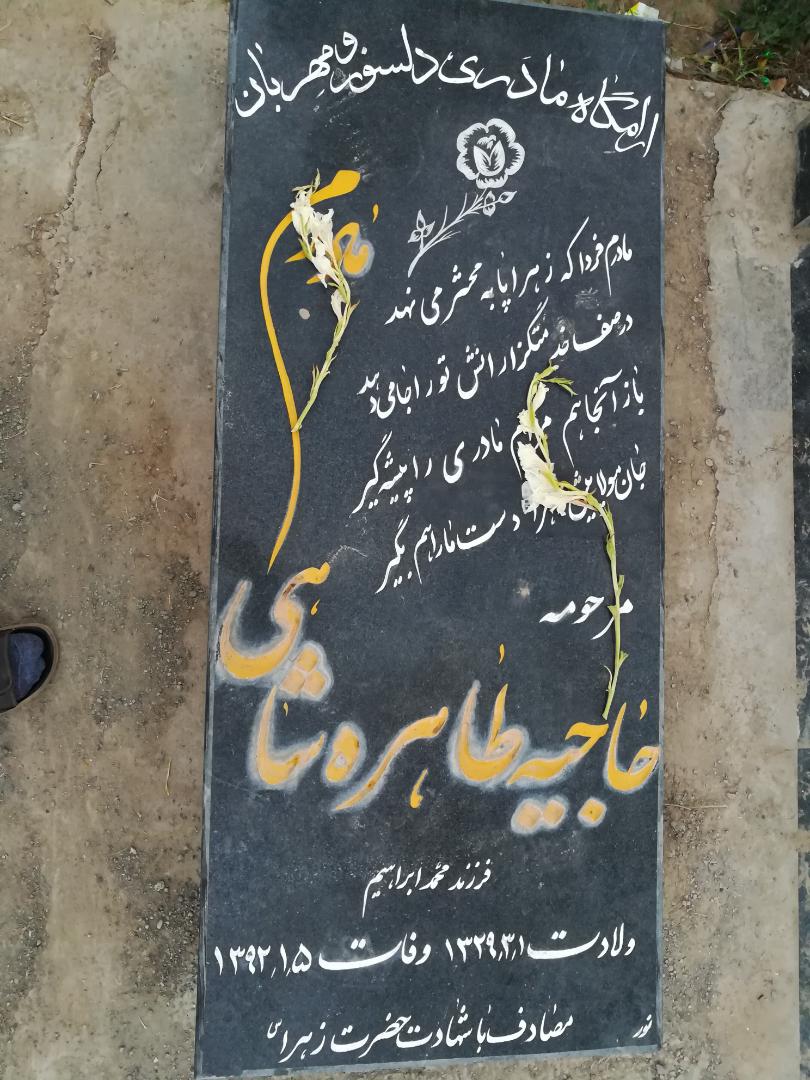 آرامگاه مادری دلسوز و مهربان
مادرم
مادرم فردا که زهرا پا به محشر می نهد
در صف خدمتگزارانش تو را جا می دهد
باز آنجا هم مادری را پیشه گیر
جان مولایت دست ما را هم بگیر
مرحومه
حاجیه طاهره شاهی
فرزند محمد ابراهیم
ولادت ۱۳۲۹,۳,۱ وفات ۱۳۹۲,۱,۵
مصادف با شهادت حضرت زهرا س
نور